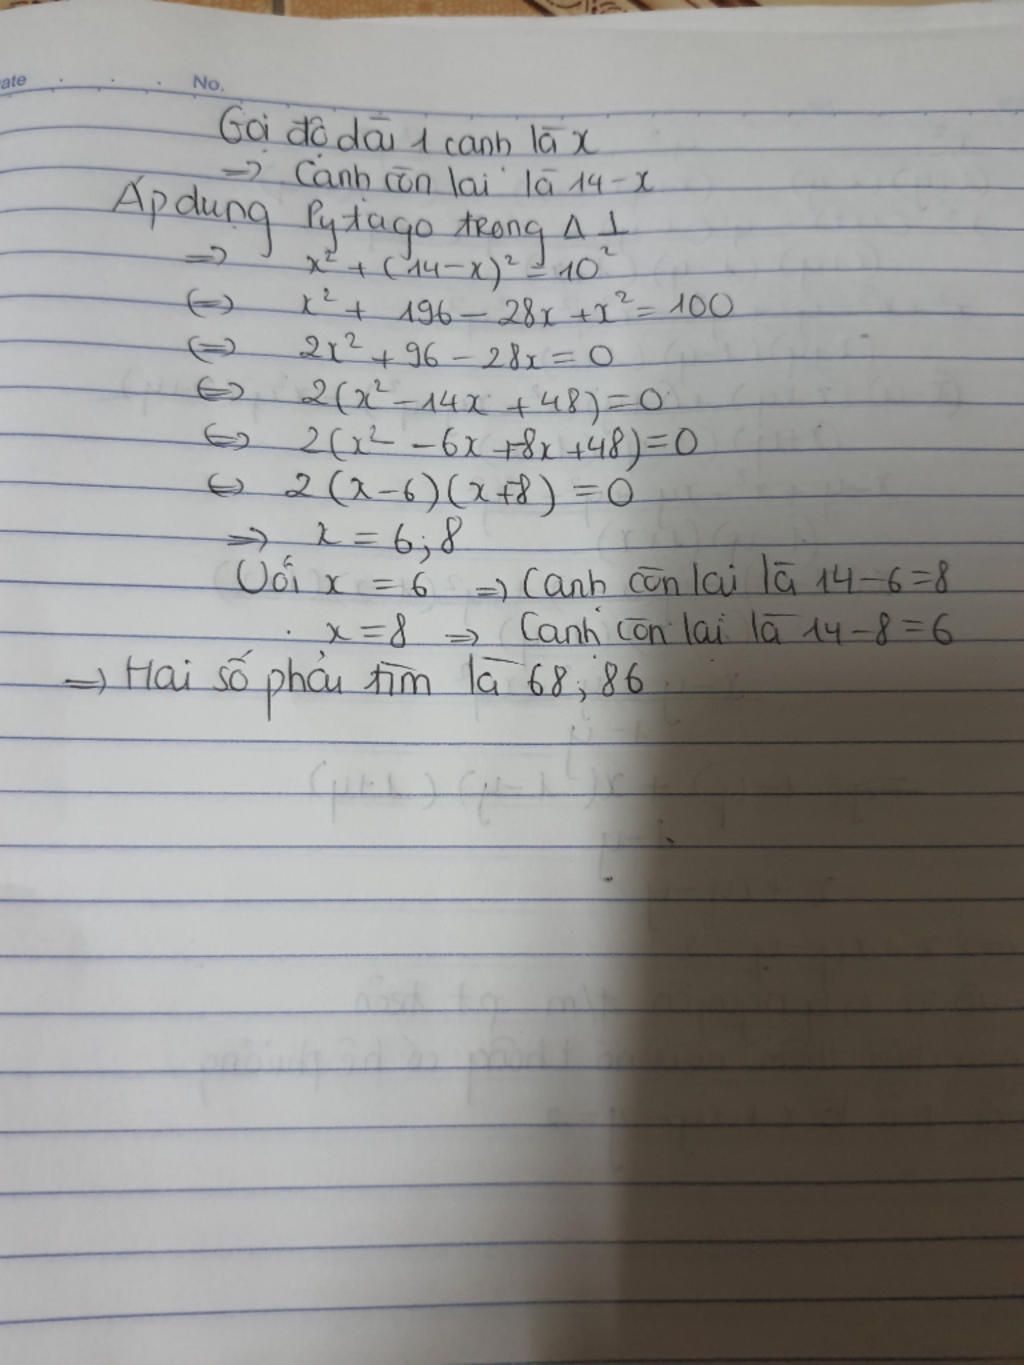 ate No.
Gọi độ dài 1 cạnh là x
=> Cạnh còn lại là 14-x
Áp dụng Pytago trong Δ ⊥
=> x² + (14-x)² = 10²
(=) x² + 196 - 28x + x² = 100
(=) 2x² + 96 - 28x = 0
<=> 2(x² - 14x + 48) = 0
<=> 2(x² - 6x + 8x + 48) = 0
<=> 2(x-6)(x+8) = 0
=> x = 6; 8
Với x = 6 => Cạnh còn lại là 14-6=8
x = 8 => Cạnh còn lại là 14-8=6
=> Hai số phải tìm là 68; 86